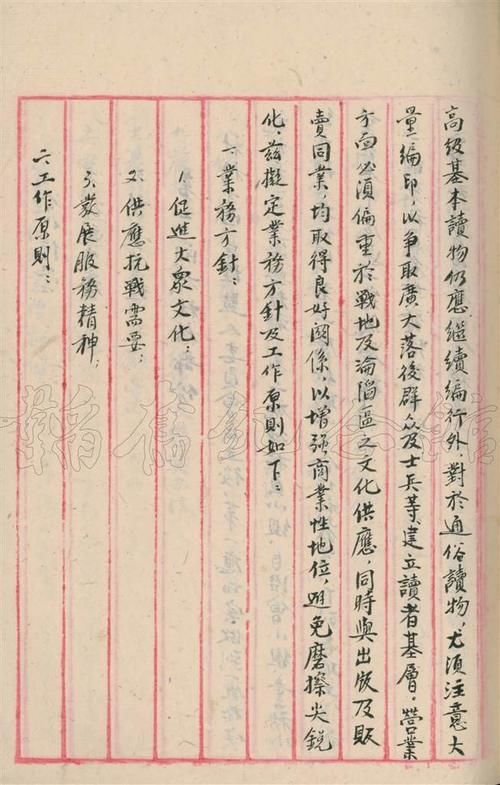 高級基本讀物仍應繼續編行外對於通俗讀物，尤須注意大
量編印，以爭取廣大落後群众及士兵等，建立讀者基層，營業
方面必須偏重於戰地及淪陷區之文化供應，同時與出版及販
賣同業，均取得良好関係，以增強商業性地位，避免磨擦尖銳
化，茲擬定業務方針及工作原則如下：
一、業務方針：
1、促進大眾文化；
2、供應抗戰需要；
3、發展服務精神，
二、工作原則：
韜奮紀念館